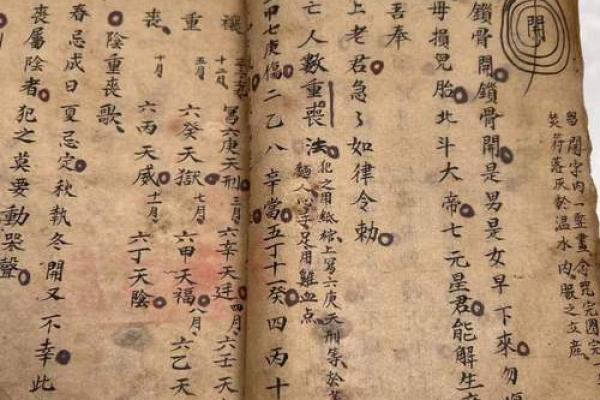 開
開字內一豎畫念咒完圈完一
焚符落灰於温水內服之立產
鎖骨開鎖骨開是男是女早下來勿
母損兒胎北斗大帝七元星君能解生
吾奉
上老君急〻如律令勅
亡人數重喪法
犯之用紙棺上寫六庚天刑等於
麵人心手足用雞血点
甲七庚傷二乙八辛當五丁十癸四丙十
禳 寫六庚天刑 三月 六辛天廷 四月 六壬天
重 五月 六癸天獄 七月 六甲天福 八月 六乙天
喪 十月 六丙天威 十一月 六丁天陰
陰重喪歌
春忌成日夏忌定秋執冬開又不幸此
喪屬陰者犯之莫要動哭聲